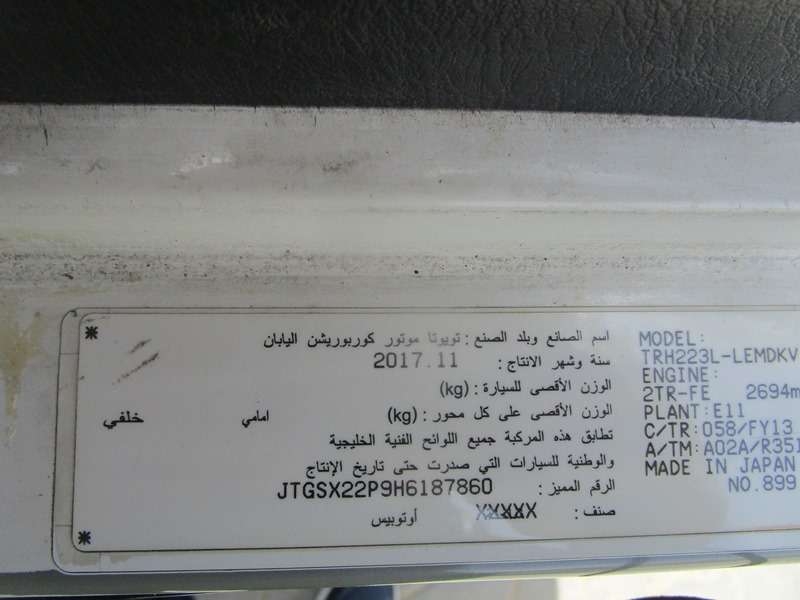 اسم الصانع وبلد الصنع : تويوتا موتور كوربوريشن اليابان
سنة وشهر الانتاج : 2017.11
الوزن الأقصى للسيارة : (kg)
الوزن الأقصى على كل محور : (kg) امامي خلفي
تطابق هذه المركبة جميع اللوائح الفنية الخليجية
والوطنية للسيارات التي صدرت حتى تاريخ الإنتاج
الرقم المميز : JTGSX22P9H6187860
صنف : XXXXX أوتوبيس
MODEL:
TRH223L-LEMDKV
ENGINE:
2TR-FE 2694m
PLANT:E11
C/TR:058/FY13
A/TM:A02A/R351
MADE IN JAPAN
NO.899